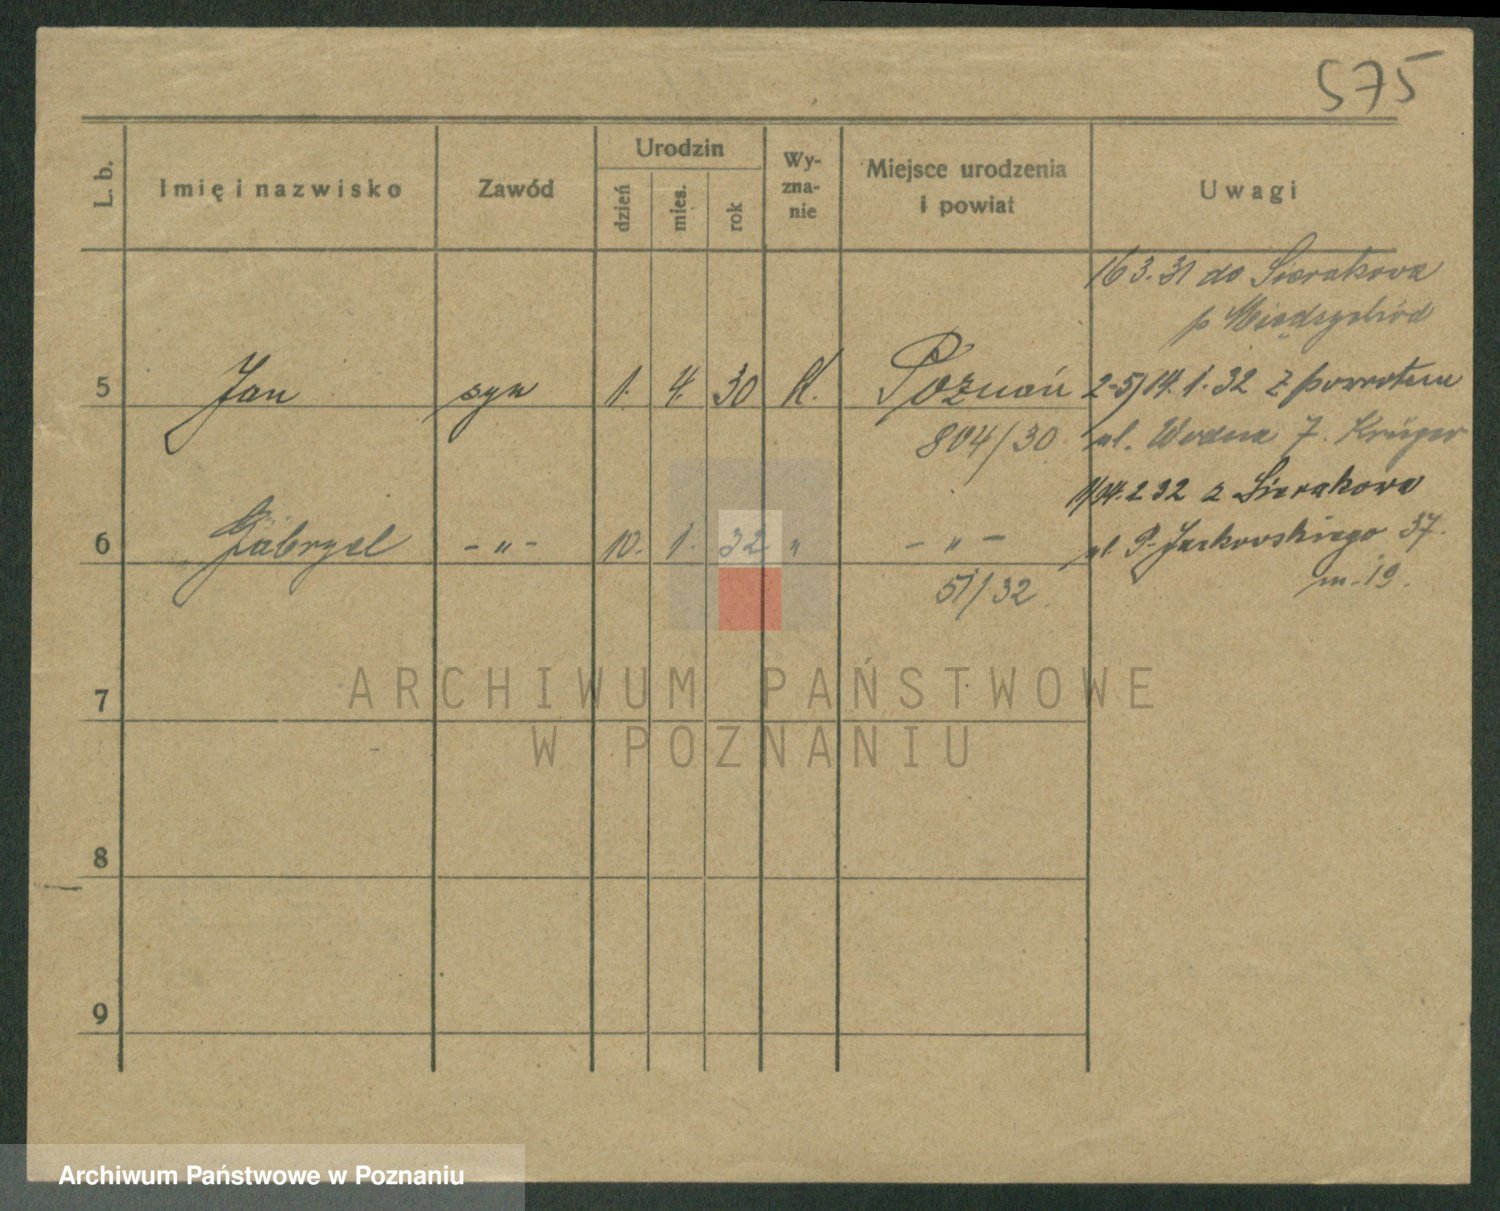 575
L. b.
Imię i nazwisko
Zawód
Urodzin
dzień
mies.
rok
Wy-
zna-
nie
Miejsce urodzenia
i powiat
Uwagi
16 3. 31 do Sierakowa
p Międzychód
5 Jan syn 1. 4. 30 K. Poznań
804/30
2-5/14. 1. 32 z powrotem
ul. Wodna 7. Krüger
6 Gabryel - „ - 10. 1. 32 „ - „ -
51/32
1/14. 2 32 z Sierakowa
ul P. Jackowskiego 37.
m. 19.
7
8
9
ARCHIWUM PAŃSTWOWE
W POZNANIU
Archiwum Państwowe w Poznaniu